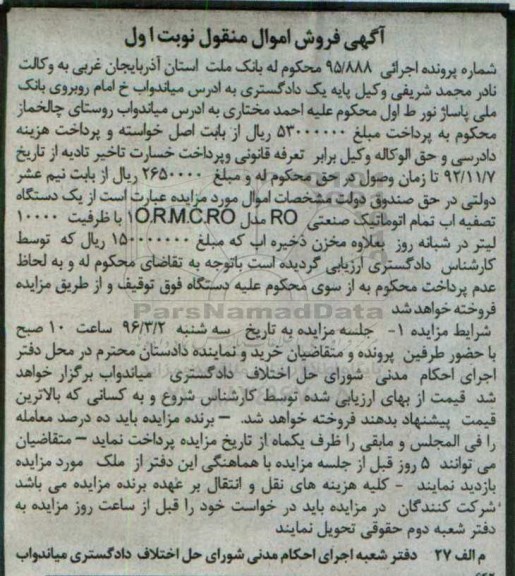 آگهی فروش اموال منقول نوبت اول
شماره پرونده اجرائی ۹۵/۸۸۸ محکوم له بانک ملت استان آذربایجان غربی به وکالت
نادر محمد شریفی وکیل پایه یک دادگستری به ادرس میاندواب خ امام روبروی بانک
ملی پاساژ نور ط اول محکوم علیه احمد مختاری به ادرس میاندواب روستای چالخماز
محکوم به پرداخت مبلغ ۵۳۰۰۰۰۰۰ ریال از بابت اصل خواسته و پرداخت هزینه
دادرسی و حق الوکاله وکیل برابر تعرفه قانونی وپرداخت خسارت تاخیر تادیه از تاریخ
۹۲/۱۱/۷ تا زمان وصول در حق محکوم له و مبلغ ۲۶۵۰۰۰۰ ریال از بابت نیم عشر
دولتی در حق صندوق دولت مشخصات اموال مورد مزایده عبارت است از یک دستگاه
تصفیه اب تمام اتوماتیک صنعتی RO مدل ۱O.R.M.C.RO با ظرفیت ۱۰۰۰۰
لیتر در شبانه روز بعلاوه مخزن ذخیره اب که مبلغ ۱۵۰۰۰۰۰۰۰ ریال که توسط
کارشناس دادگستری ارزیابی گردیده است باتوجه به تقاضای محکوم له و به لحاظ
عدم پرداخت محکوم به از سوی محکوم علیه دستگاه فوق توقیف و از طریق مزایده
فروخته خواهد شد
ParsNamadData
شرایط مزایده ۱- جلسه مزایده به تاریخ سه شنبه ۹۶/۳/۲ ساعت ۱۰ صبح
با حضور طرفین پرونده و متقاضیان خرید و نماینده دادستان محترم در محل دفتر
اجرای احکام مدنی شورای حل اختلاف دادگستری میاندواب برگزار خواهد
شد قیمت از بهای ارزیابی شده توسط کارشناس شروع و به کسانی که بالاترین
قیمت پیشنهاد بدهند فروخته خواهد شد. – برنده مزایده باید ده درصد معامله
را فی المجلس و مابقی را ظرف یکماه از تاریخ مزایده پرداخت نماید – متقاضیان
می توانند ۵ روز قبل از جلسه مزایده با هماهنگی این دفتر از ملک مورد مزایده
بازدید نمایند - کلیه هزینه های نقل و انتقال بر عهده برنده مزایده می باشد
شرکت کنندگان در مزایده باید در خواست خود را قبل از ساعت روز مزایده به
دفتر شعبه دوم حقوقی تحویل نمایند
م الف ۲۷ دفتر شعبه اجرای احکام مدنی شورای حل اختلاف دادگستری میاندواب